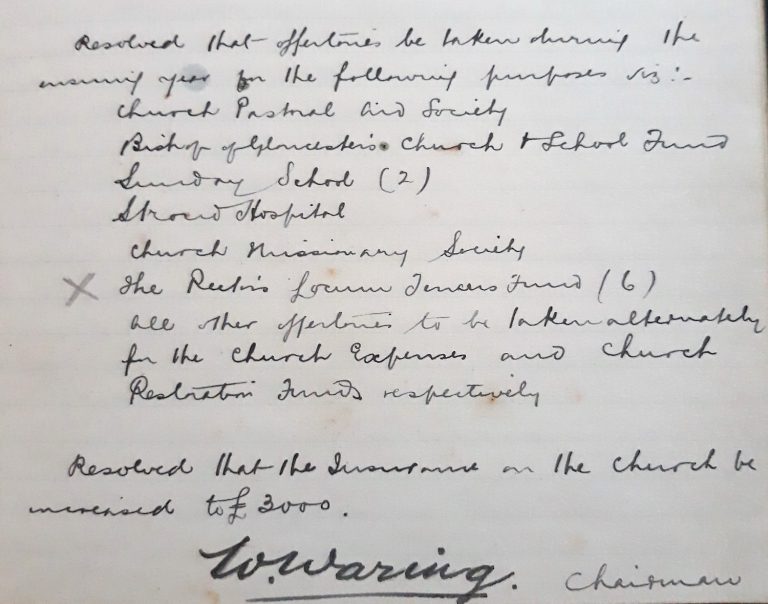 Resolved that offertories be taken during the
ensuing year for the following purposes viz:-
Church Pastoral Aid Society
Bishop of Gloucester's Church & School Fund
Sunday School (2)
Stroud Hospital
Church Missionary Society
X The Rector's Locum Tenens Fund (6)
All other offertories to be taken alternately
for the Church Expenses and Church
Restoration Funds respectively
Resolved that the Insurance on the Church be
increased to £3000.
W. Waring. Chairman